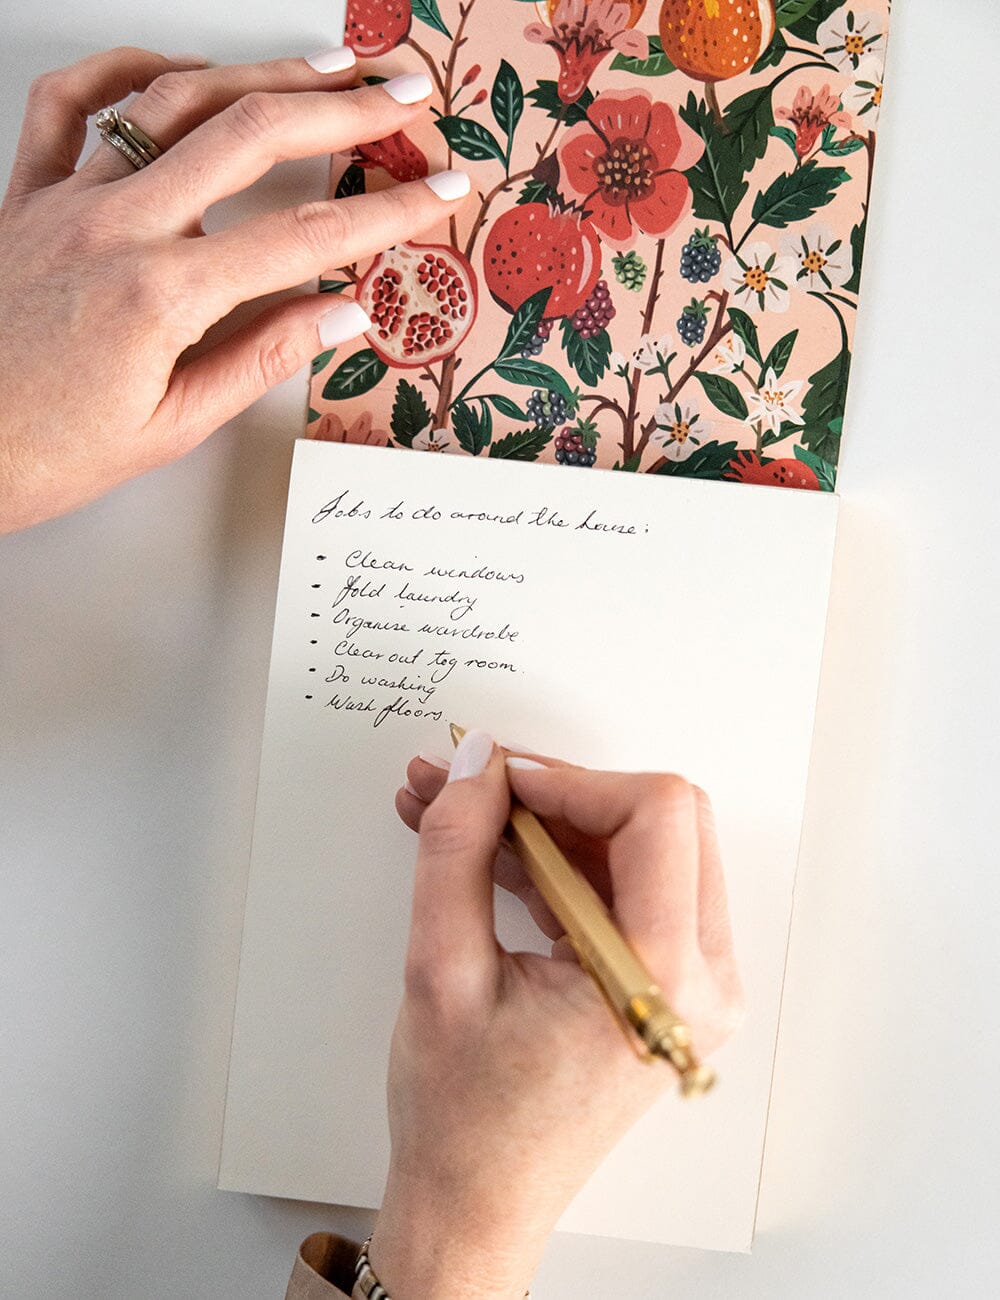 Jobs to do around the house:
- Clean windows
- Fold laundry
- Organise wardrobe.
- Clear out toy room.
- Do washing
- Wash floors.